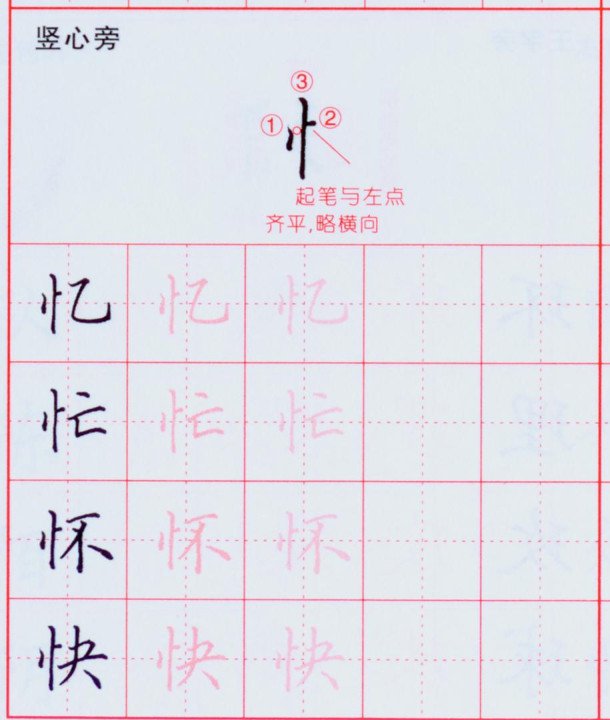 竖心旁
③
① 忄 ②
起笔与左点
齐平,略横向
忆 忆 忆
忙 忙 忙
怀 怀 怀
快 快 快